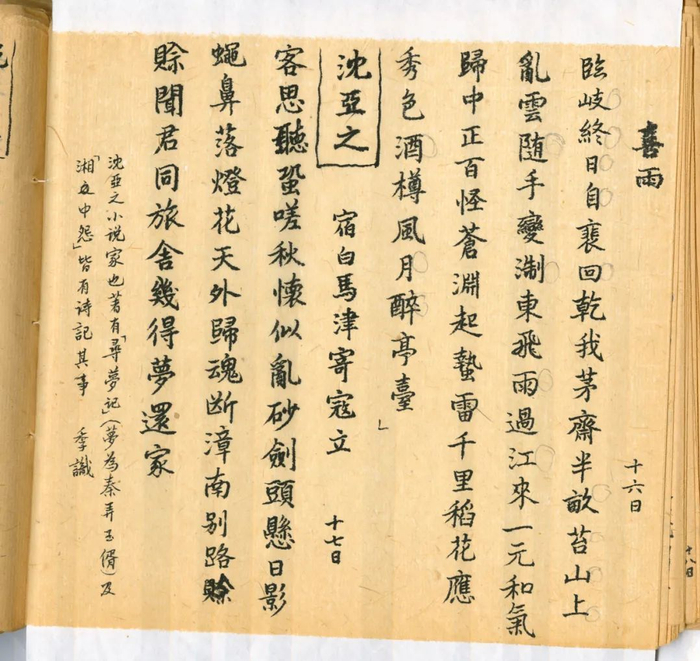 喜雨
十六日
臨岐終日自裵回乾我茅齋半畝苔山上
亂雲随手變淛東飛雨過江來一元和氣
歸中正百怪蒼淵起蟄雷千里稻花應
秀色酒樽風月醉亭臺」
沈亞之 宿白馬津寄寇立
十七日
客思聽蛩嗟秋懷似亂砂劍頭懸日影
蠅鼻落燈花天外歸魂断漳南别路
賒聞君同旅舍幾得夢還家
沈亞之小说家也著有「尋夢記」(夢為秦弄玉偦)及
「湘中怨」皆有诗記其事 季識
十八日